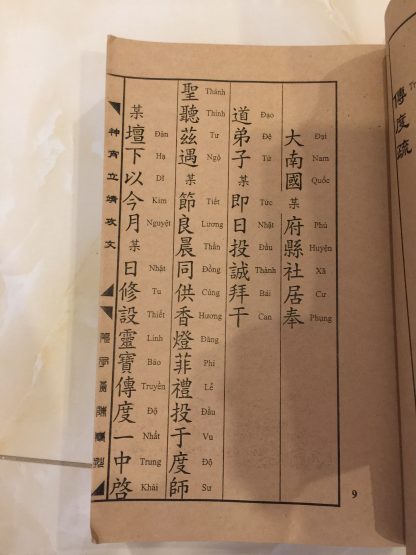 傳度疏
大南國某府縣社居奉
Đại Nam Quốc Phủ Huyện Xã Cư Phụng
道弟子某即日投誠拜干
Đạo Đệ Tử Tức Nhật Đầu Thành Bái Can
聖聽茲遇某節良晨同供香燈菲禮投于度師
Thánh Thính Tư Ngộ Tiết Lương Thần Đồng Cúng Hương Đăng Phi Lễ Đầu Vu Độ Sư
某壇下以今月某日修設靈寶傳度一中啓
Đàn Hạ Dĩ Kim Nguyệt Nhật Tu Thiết Linh Bảo Truyền Độ Nhất Trung Khải
神宵立靖攻文
9